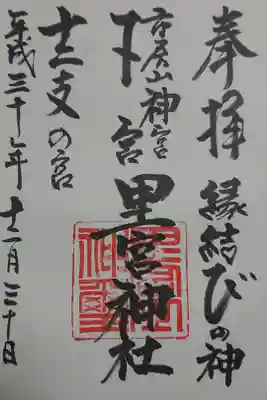 奉拝 縁結びの神
市房山神宮
下宮 里宮神社
十二支の宮
平成三十年 十二月二十日